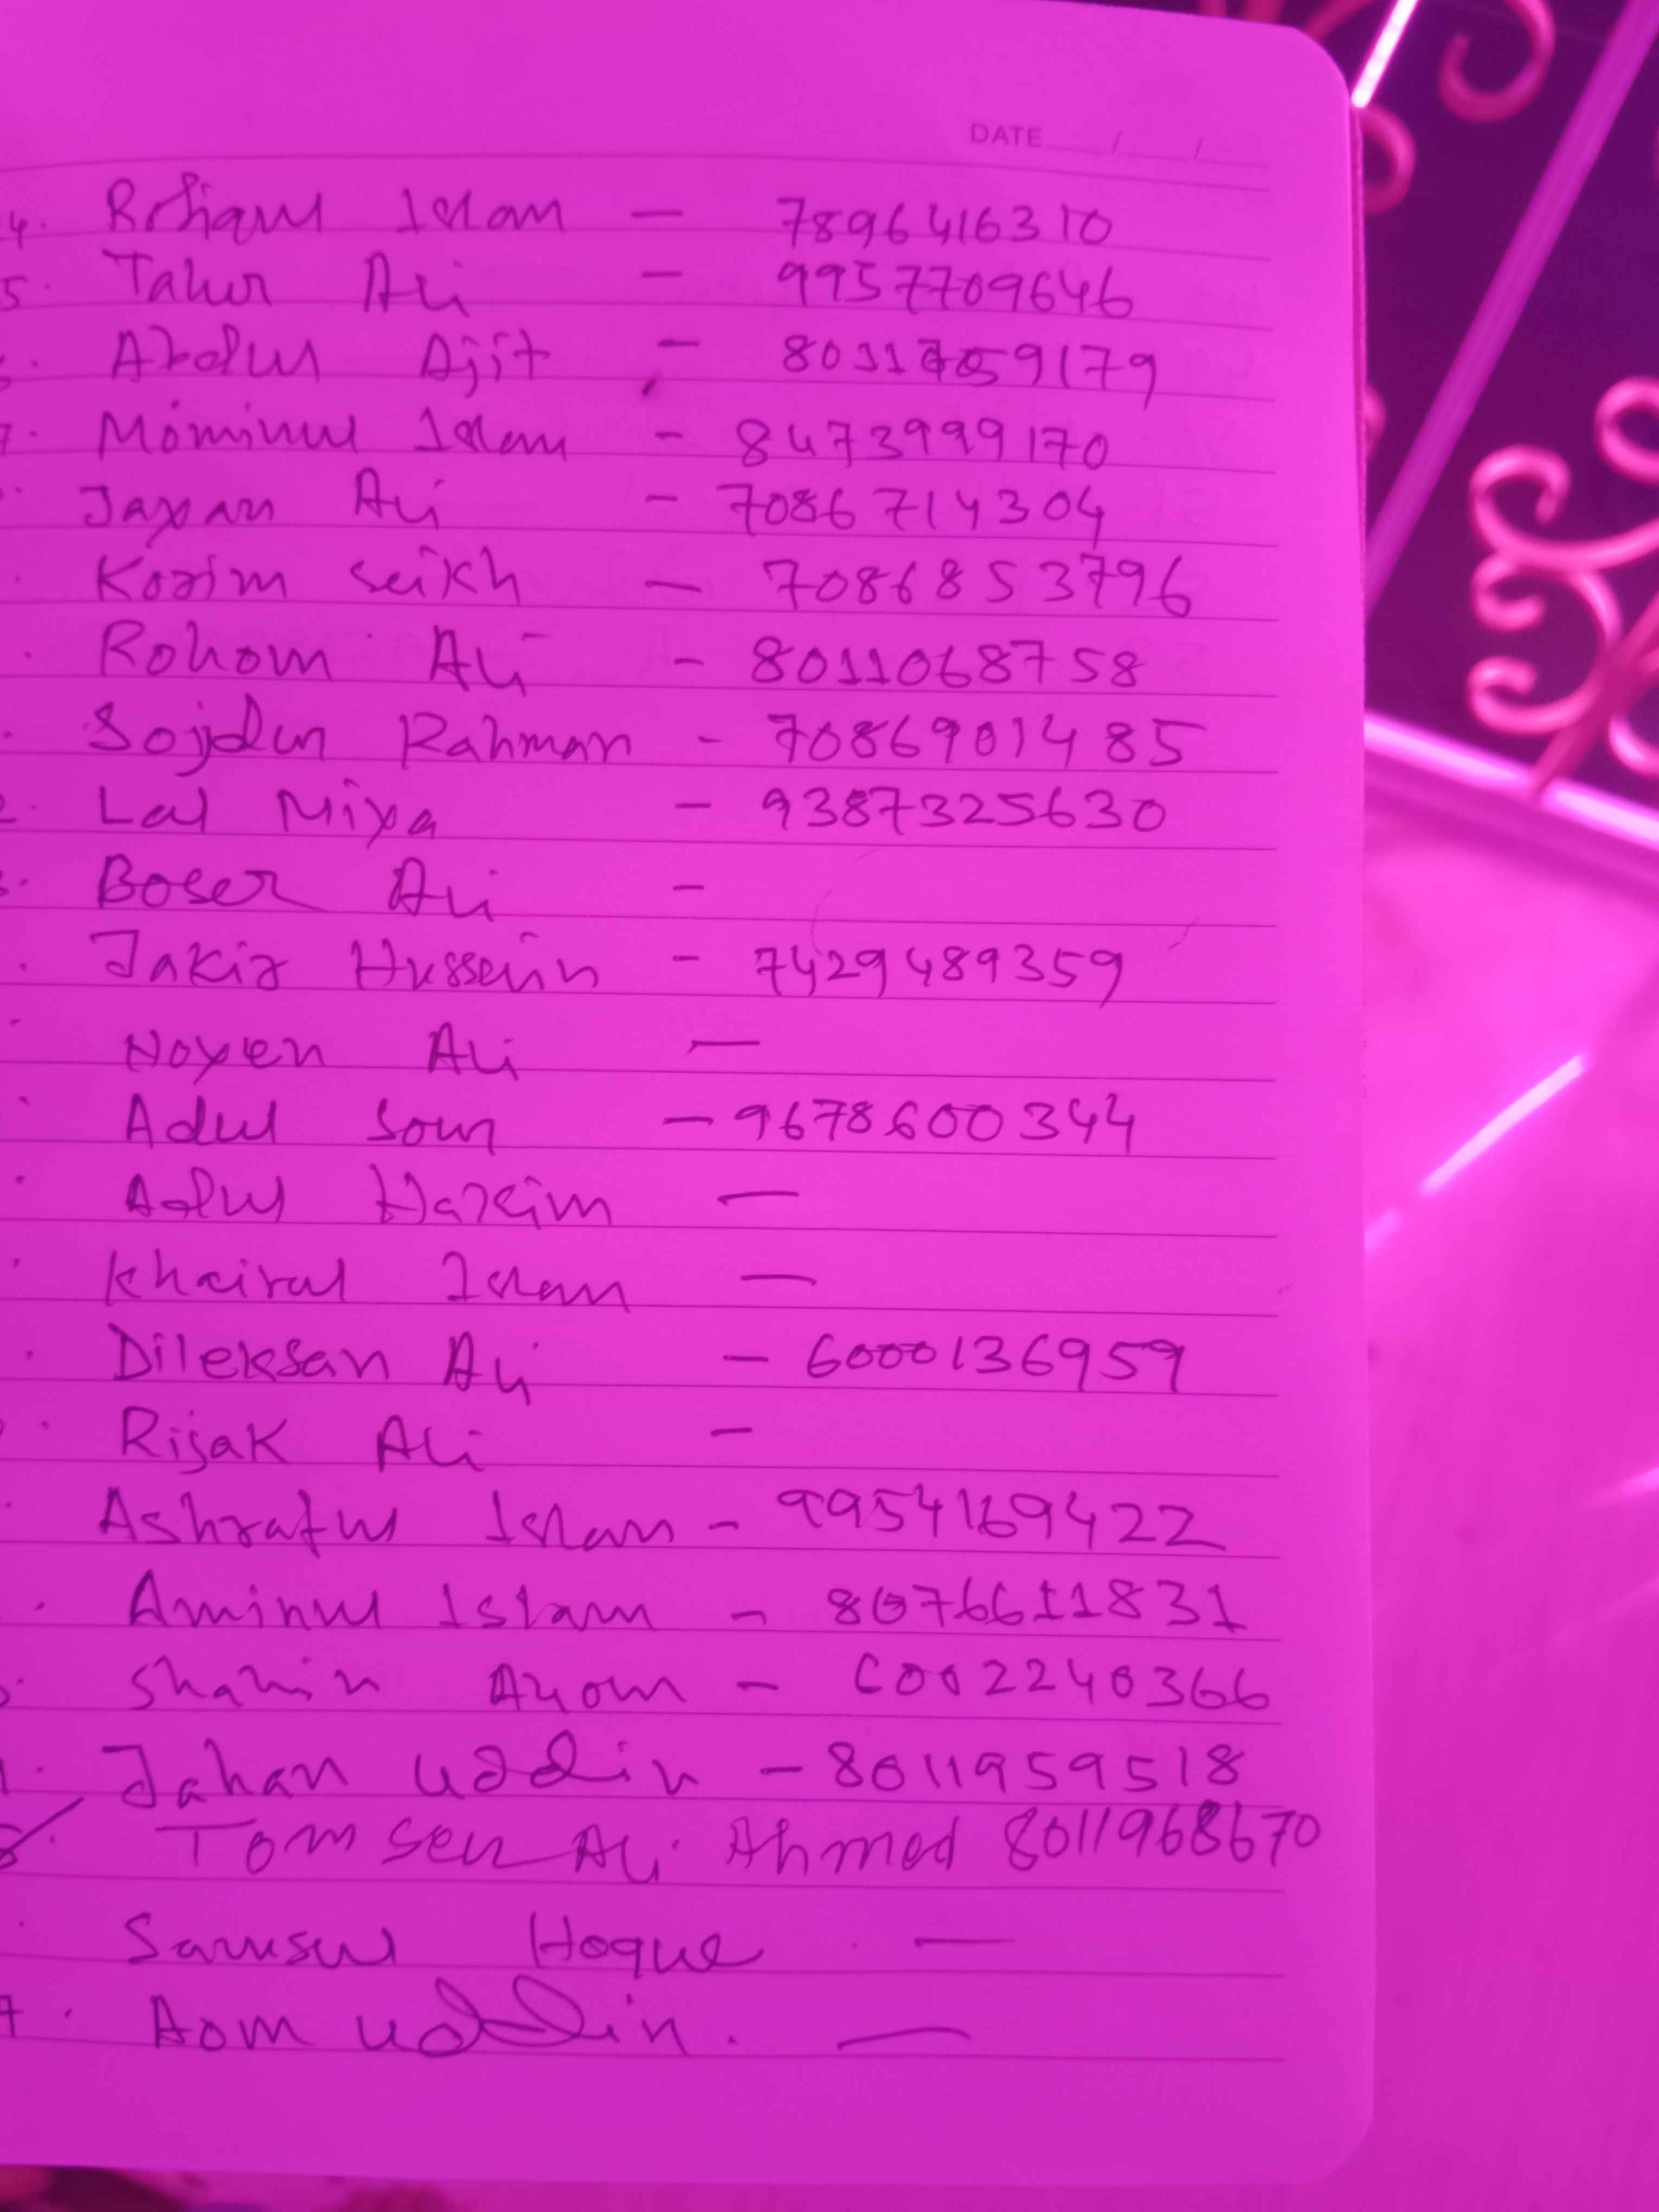 DATE / /
4. Rofiqul Islam - 7896416310
5. Taher Ali - 9957709646
Abdul Ajit - 8011759179
7. Mominul Islam - 8473999170
Jaynan Ali - 7086714304
Korim Seikh - 7086853796
Rohom Ali - 8011068758
Sojidur Rahman - 7086901485
2. Lal Miya - 9387325630
3. Boser Ali -
Jakir Hussein - 7429489359
Noyen Ali -
Adul Som - 9678600344
Adul Hakim -
Khairul Islam -
Dileksan Ali - 6000136959
Rijak Ali -
Ashraful Islam - 9954169422
Aminul Islam - 8076611831
Shahin Alom - 6002240366
Jahan Uddin - 8011959518
Tomser Ali Ahmed 8011968670
Samsul Hoque -
7. Aom uddin. -